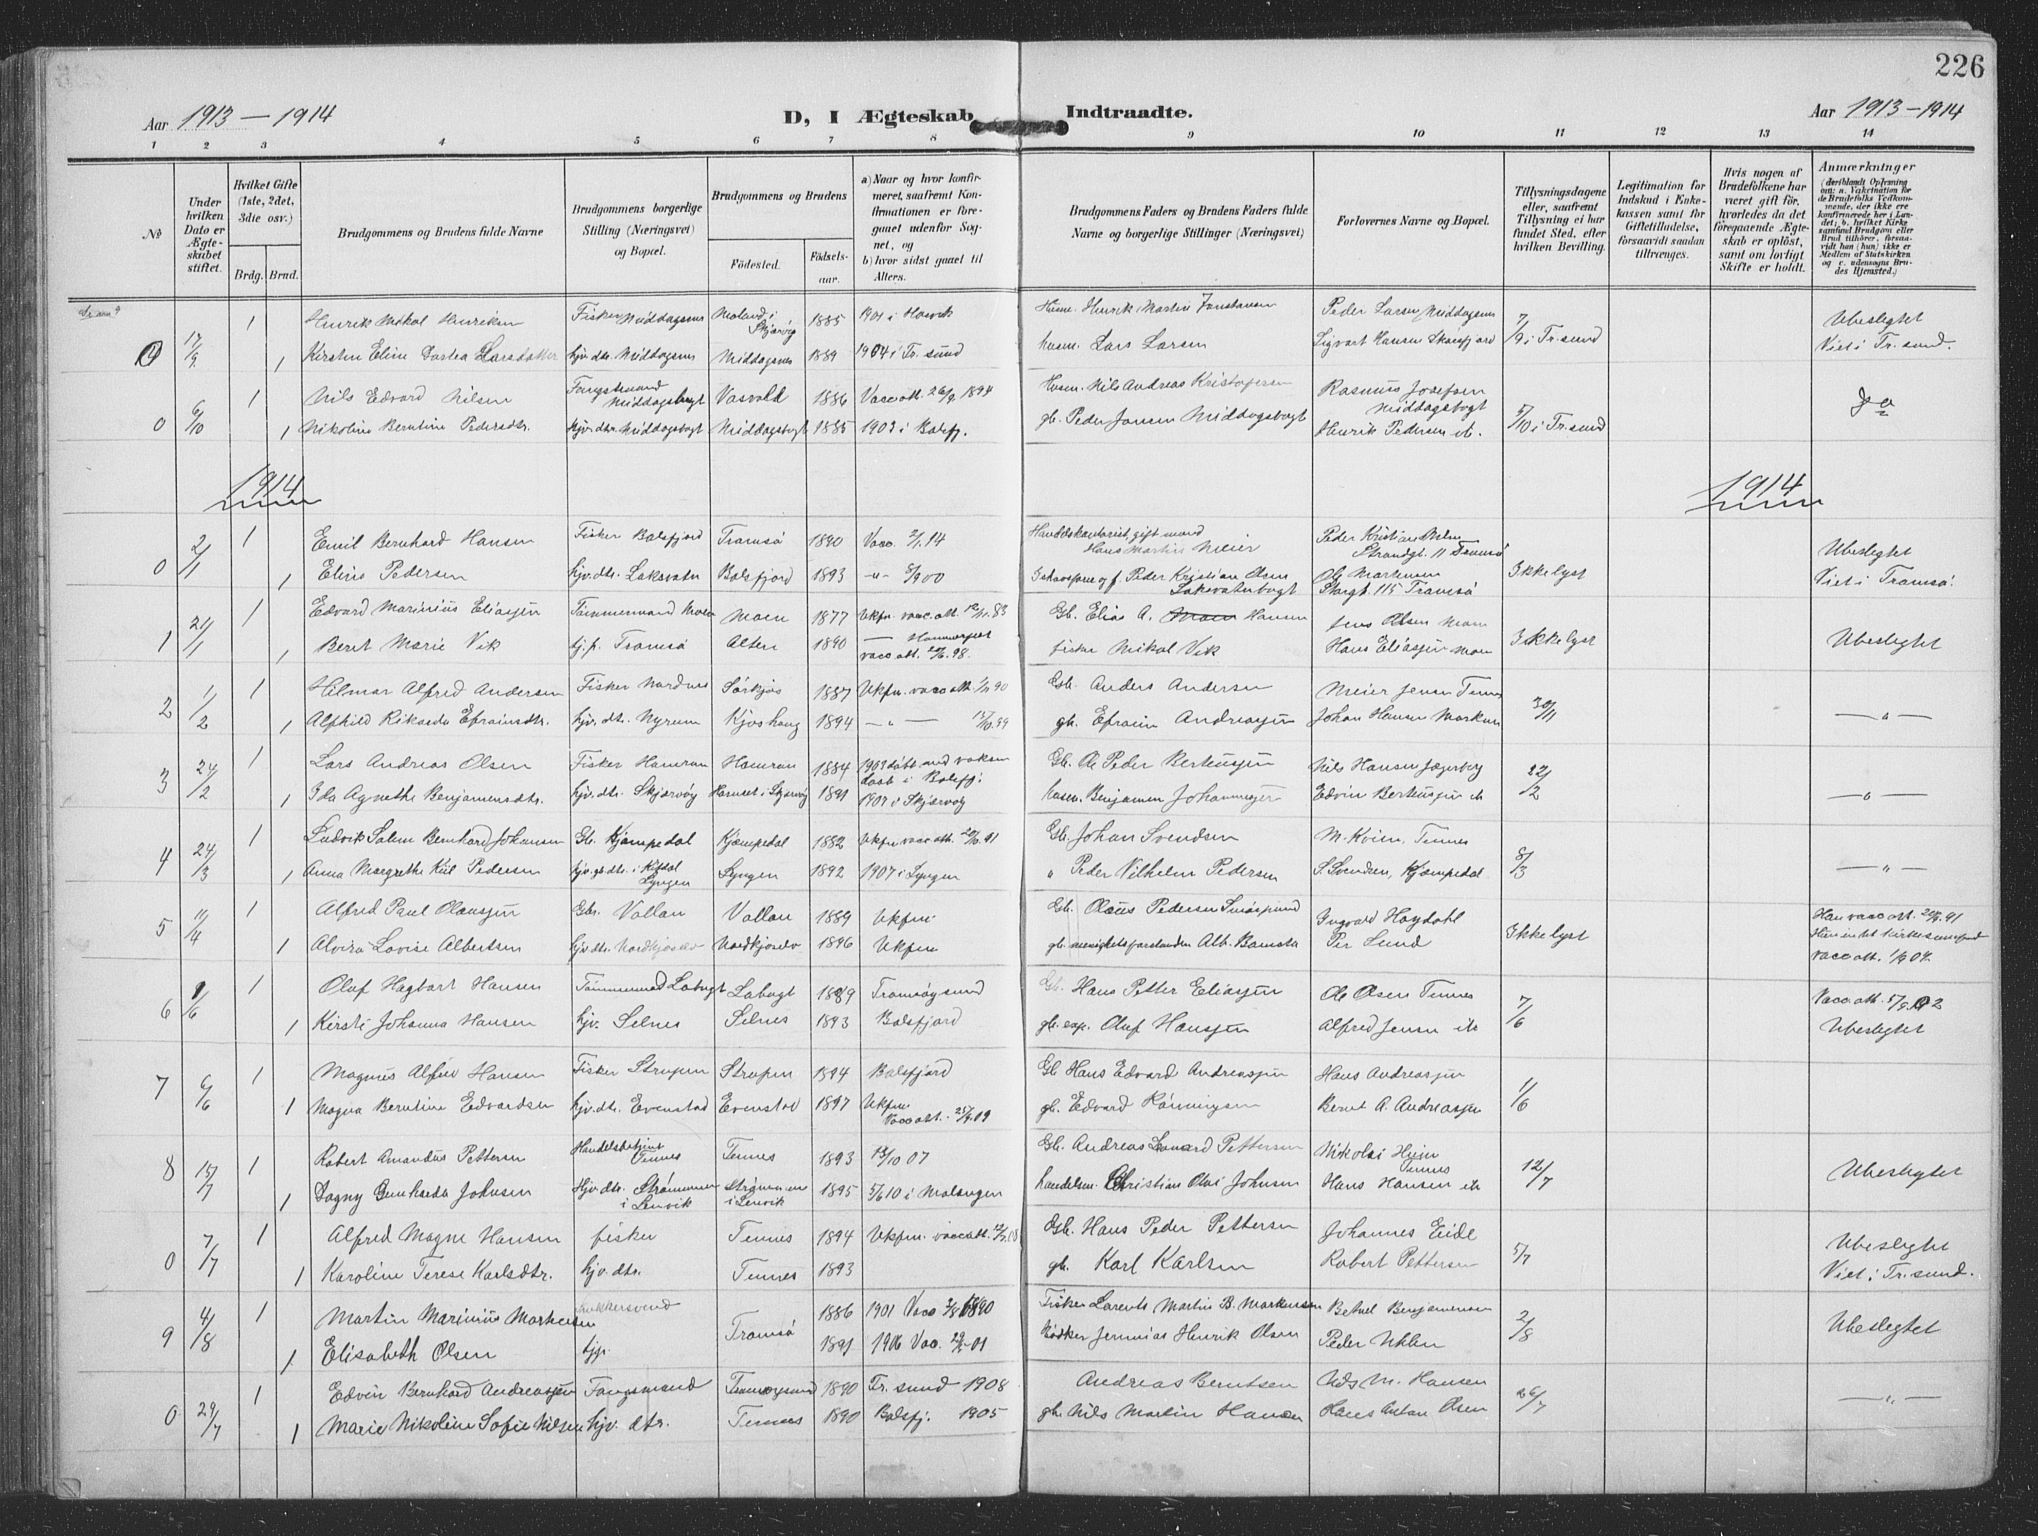 226
Aar 1913 — 1914
D, I Ægteskab Indtraadte.
Aar 1913 – 1914
1 2 3 4 5 6 7 8 9 10 11 12 13 14
No
Under hvilken Dato er Ægteskabet stiftet.
Hvilket Gifte (1ste, 2det, 3die osv.)
Brdg. Brud.
Brudgommens og Brudens fulde Navne
Brudgommens borgerlige Stilling (Næringsvei) og Bopæl.
Brudgommens og Brudens
Fødested. Fødselsaar.
a) Naar og hvor konfirmeret, saafremt Konfirmationen er foregaaet udenfor Sognet, og
b) hvor sidst gaaet til Alters.
Brudgommens Faders og Brudens Faders fulde Navne og borgerlige Stillinger (Næringsvei)
Forlovernes Navne og Bopæl.
Tillysningsdagene eller, saafremt Tillysning ei har fundet Sted, efter hvilken Bevilling.
Legitimation for Indskud i Enkekassen samt for Giftetilladelse, forsaavidt saadan tiltrænges.
Hvis nogen af Brudefolkene har været gift før, hvorledes da det foregaaende Ægteskab er opløst, samt om lovligt Skifte er holdt.
Anmærkninger
(deriblandt Oplysning om: a. Vakcination for de Brudefolks Vedkommende, der ikke ere konfirmerede her i Landet; b. hvilket Kirkesamfund Brudgom eller Brud tilhører, forsaavidt han (hun) ikke er Medlem af Statskirken og c. udensogns Brudes Hjemsted.)
17/9 1 Henrik Mikal Henriksen Fisker Middagsnes Moland i Skjærvög 1885 1901 i Hasvik Husm. Henrik Martin Peder Larsen Middagsnes 7/9 i Tr.sund Ubeslegtet
1 Kirsten Eline Dortea Larsdatter hjv. dtr. Middagsnes Middagsnes 1889 1904 i Tr.sund husm. Lars Larsen Sigvart Hansen Viet i Tr.sund.
6/10 1 Nils Edvard Nilsen Fangstmand Middagsbugt Vasvold 1886 Vacc.att. 26/9 1894 Husm. Nils Andreas Kristofersen Rasmus Josefsen Middagsbogt 5/10 i Tr.sund do
0 1 Nikoline Berntine Pedersdtr. hjv. dtr. Middagsbogt Middagsbogt 1885 1903 i Balsfj. gb. Peder Jonsen Middagsbogt Henrik Pedersen
1914 1914
0 2/1 1 Emil Bernhard Hansen Fisker Balsfjord Tromsö 1890 Vacc. 2/1.14 Hans Martin Meier Peder Kristian Strandgt. 11 Tromsö Ikke lyst Ubeslegtet
1 Eline Pedersen hjv. dtr. Laksvatn Balsfjord 1893 -"- 8/9 00 Peder Kristian Olsen Laksvatnbogt Ole Martensen Storgt. 115 Tromsö Viet i Tromsö.
1 24/1 1 Edvard Marinius Eliassen Tømmermand Moen Moen 1877 Ukfm. vacc.att. 83 Gb. Elias A. Hansen Jens Olsen Moen Ikke lyst Ubeslegtet
1 Beret Marie Vik hj. p. Tromsö Alten 1890 — Hammerfest vacc.att. 98. fisker Mikal Vik Hans Eliassen Moen
2 1/2 1 Hilmar Alfred Andersen Fisker Nordnes Sörkjos 1887 Ukfm. vacc.att. 90 Gb. Anders Andersen Meier Jensen Tennes 30/11 — " —
1 Alfhild Rikarda Efraimsdtr. hjv. dtr. Nyrum Kjoshaug 1894 — " — 99 gb. Efraim Andreassen Johan Hansen Marknes
3 24/2 1 Lars Andreas Olsen Fisker Hamran Hamran 1884 1903 døbt med voksen daab i Balsfj. Gb. Ole Peder Berteussen Nils Hansen Jægerberg 22/2 — " —
1 Ida Agnethe Benjaminsdtr. hjv. dtr. Skjærvög Havnset i Skjærvög 1891 1907 i Skjærvög husm. Benjamin Johannesen Edvin Berteussen
4 24/3 1 Ludvik Salem Bernhard Johansen Gb. Kjæmpedal Kjæmpedal 1882 Ukfm vacc.att. 91 Gb. Johan Svendsen M. Kvien, Tennes 8/3 — " —
1 Anna Margrethe Kiil Pedersen hjv. gb. dtr. i Kitdal Lyngen Lyngen 1892 1907 i Lyngen " Peder Vilhelm Pedersen S. Svendsen, Kjæmpedal
5 11/4 1 Alfred Paul Olaussen Gbr. Vollan Vollan 1889 Ukfm. Gb. Olaus Pedersen Ingvard Høydahl Ikke lyst Han vacc.att. 91
1 Alvira Lovise Albertsen hjv. dtr. Nordkjoselv Nordkjoselv 1896 Ukfm gb. menighetsforstander Alb. Per Lund vacc.att. 1/9 07.
6 1/6 1 Olaf Hagbart Hansen Tømmermand Labugt Labugt 1889 Tromsøysund Gb. Hans Petter Eliassen Ole Olsen Tennes 7/6 Vacc.att. 5/9 02
1 Kirsti Johanna Hansen hjv. Selnes Selnes 1893 Balsfjord gb. exp. Oluf Hanssen Alfred Jensen Ubeslegtet
7 6/6 1 Magnus Alfred Hansen Fisker Strupen Strupen 1894 Balsfjord Gb Hans Edvard Andreassen Hans Andreassen 1/6
1 Magna Berntine Edvardsen hjv. dtr. Evenstad Evenstad 1897 Ukfm. Vacc.att. 25/9 09 gb. Edvard Rønningsen Bernt A. Andreassen
8 15/7 1 Robert Amandus Pettersen Handelsbetjent Tennes Tennes 1893 13/10 07 Gb. Andreas Leonard Pettersen Nikolai Heim Tennes 12/7 Ubeslegtet
1 Dagny Gunharda Johnsen Hjv. dtr. Strømmen i Lenvik Strømmen i Lenvik 1895 5/6 10 i Malangen handelsm. Christian Olai Johnsen Hans Hansen
0 7/7 1 Alfred Magne Hansen fisker Tennes 1894 Ukfm. vacc.att. Gb. Hans Peder Pettersen Johannes Eide 5/7 Ubeslegtet
1 Karoline Terese Karlsdtr. hjv. dtr. Tennes 1893 gb. Karl Karlsen Robert Pettersen Viet i Tr.sund.
9 4/8 1 Martin Marinius Markussen Tromsö 1886 1901 Vacc. 1890 Fisker Lorents Martin B. Markussen Betuel Benjaminsen 2/8 Ubeslegtet
1 Elisabeth Olsen hjp. 1891 1906 Vac. 01 Bödker Jermias Henrik Olsen Peder
0 29/7 1 Edvin Bernhard Andreassen Fangsmand Tromøysund 1890 Tr.sund 1908 Andreas Berntsen Nils M. Hansen 26/7 — " —
1 Marie Nikoline Sofie Nilsen hjv. dtr. Tennes 1890 Balsfj. 1905 gb. Nils Martin Hansen Hans Anton Olsen